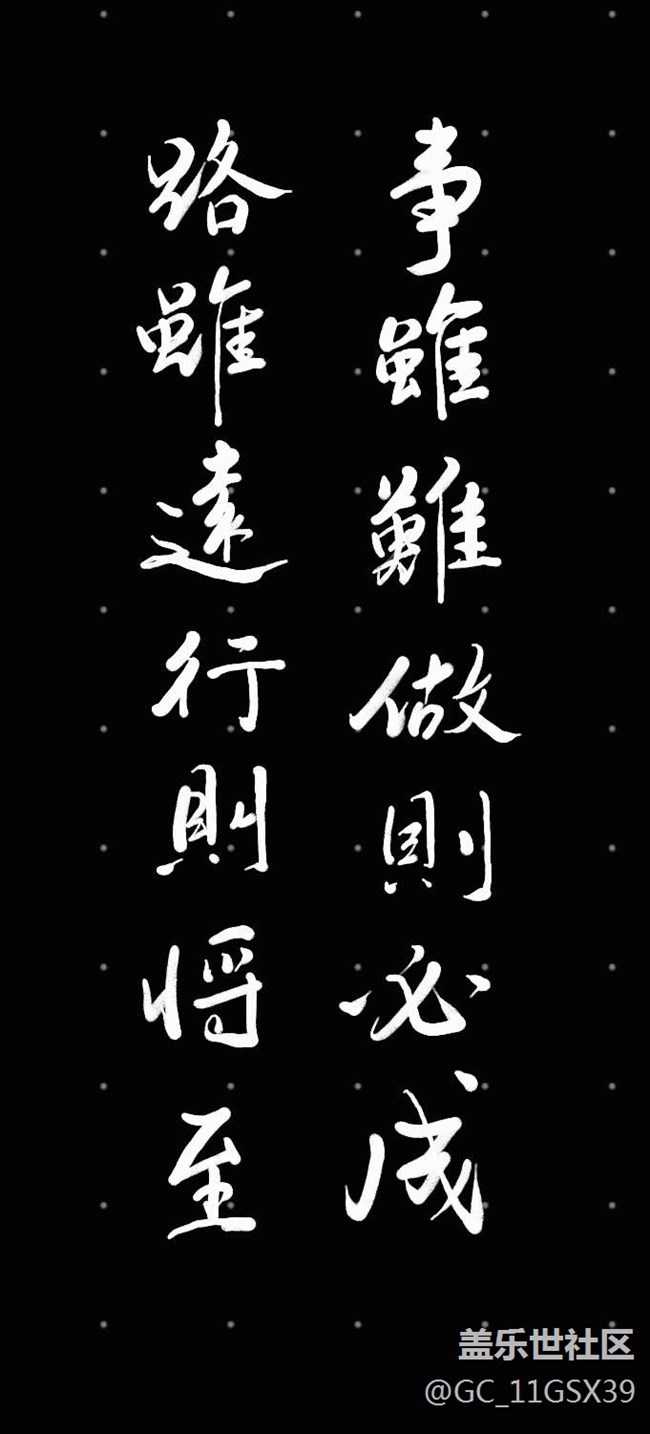 事雖難做則必成
路雖遠行則將至
盖乐世社区
@GC_11GSX39